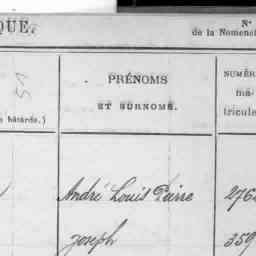 QUE.
N°
de la Nomencl
PRÉNOMS
ET SURNOMS.
NUMÉR
ma-
tricule
bâtarde.)
51
André Louis Pierre
276
Joseph
359